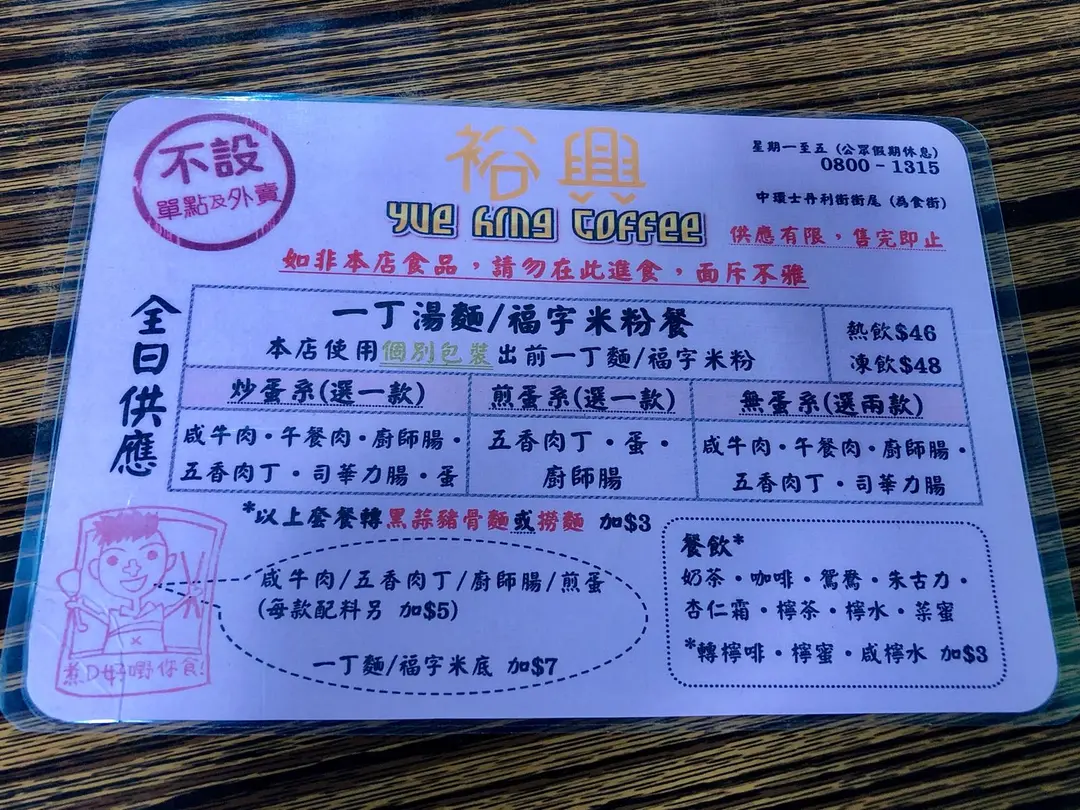 不設
單點及外賣
裕興
Yue Hing Coffee
星期一至五 (公眾假期休息)
0800 - 1315
中環士丹利街街尾 (為食街)
供應有限，售完即止
如非本店食品，請勿在此進食，面斥不雅
全日供應
一丁湯麵/福字米粉餐
本店使用個別包裝出前一丁麵/福字米粉
熱飲$46
凍飲$48
炒蛋系(選一款)
煎蛋系(選一款)
無蛋系(選兩款)
咸牛肉·午餐肉·廚師腸·
五香肉丁·司華力腸·蛋
五香肉丁·蛋·
廚師腸
咸牛肉·午餐肉·廚師腸·
五香肉丁·司華力腸
*以上套餐轉黑蒜豬骨麵或撈麵 加$3
咸牛肉/五香肉丁/廚師腸/煎蛋
(每款配料另 加$5)
一丁麵/福字米底 加$7
煮D好嘢你食!
餐飲*
奶茶·咖啡·鴛鴦·朱古力·
杏仁霜·檸茶·檸水·菜蜜
*轉檸啡·檸蜜·咸檸水 加$3